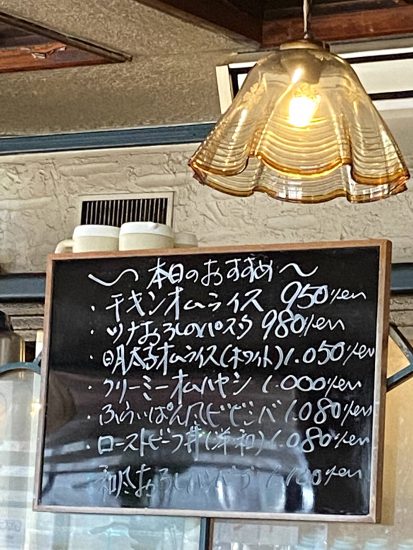 〜本日のおすすめ〜
・チキンオムライス 950yen
・ツナおろしのパスタ 980yen
・明太子オムライス(ホワイト) 1.050yen
・クリーミーオムハヤシ 1.000yen
・ふらいぱん風ビビンバ 1.080yen
・ローストビーフ丼(洋・和) 1.080yen
和風おろしハンバーグ yen